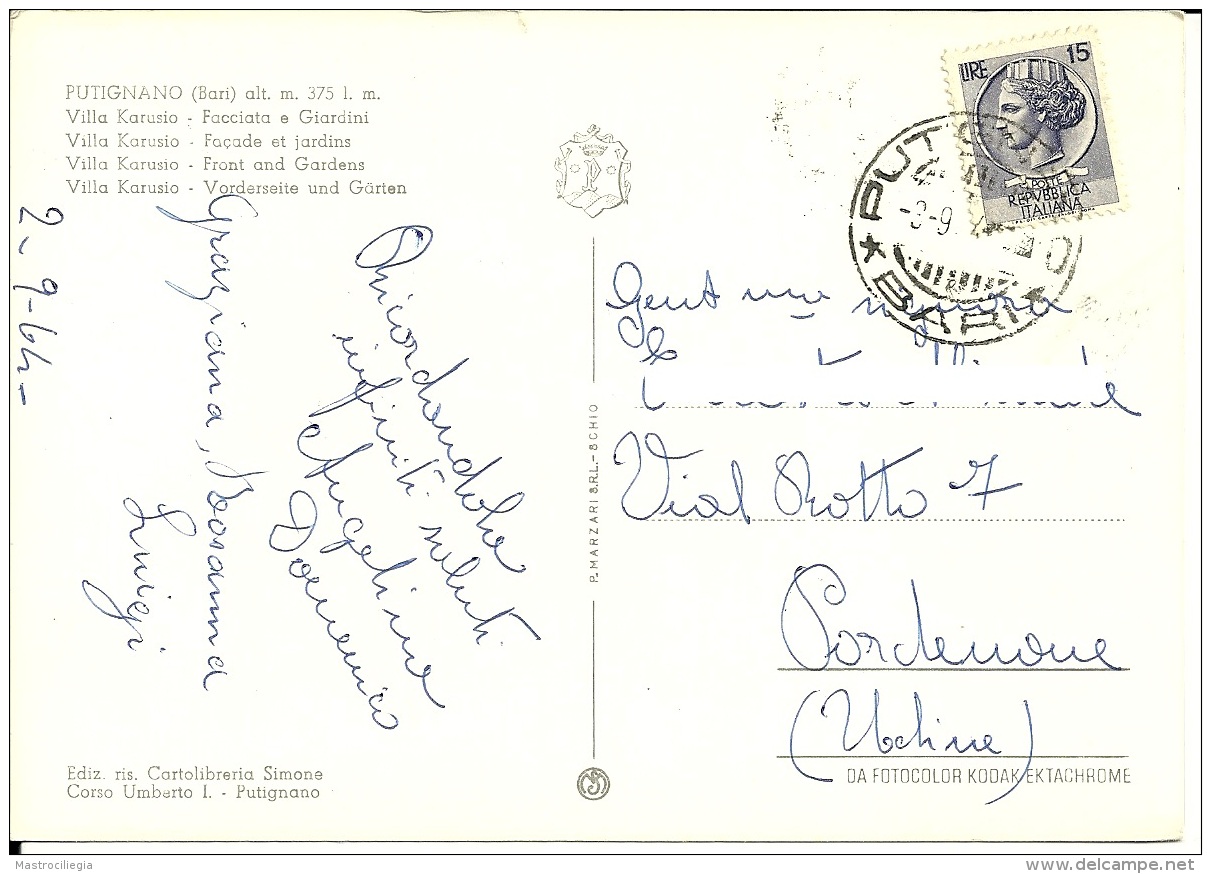 PUTIGNANO (Bari) alt. m. 375 l. m.
Villa Karusio - Facciata e Giardini
Villa Karusio - Façade et jardins
Villa Karusio - Front and Gardens
Villa Karusio - Vorderseite und Gärten
2-9-64-
Ricordandola
infiniti saluti
Angelina
Domenico
Graziana, Rosanna
Luigi
Ediz. ris. Cartolibreria Simone
Corso Umberto I. - Putignano
P. MARZARI S.R.L. - SCHIO
LIRE 15
POSTE
REPVBBLICA
ITALIANA
PUT
-3-9
★ BARI ★
Gent ma signora
Vial Rotto 7
Pordenone
(Udine)
DA FOTOCOLOR KODAK EKTACHROME
Mastrociliegia
delcampe.net